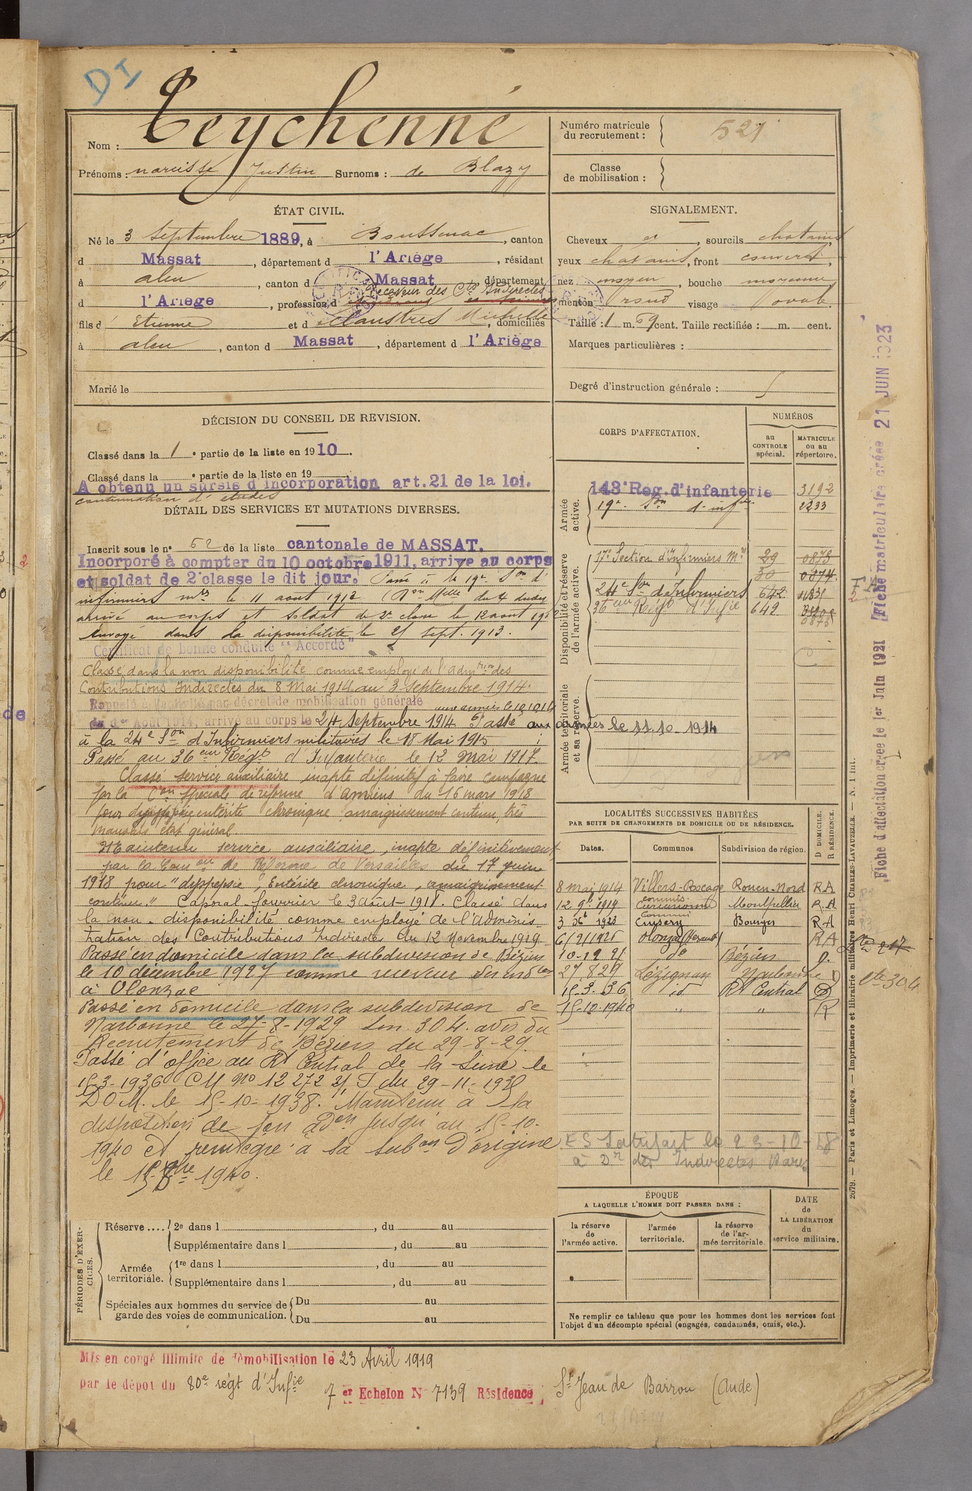 DI
Nom : Teychenné
Prénoms : narcisse Justin Surnoms : de Blazy
Numéro matricule du recrutement : 521
Classe de mobilisation :
ÉTAT CIVIL.
Né le 3 septembre 1889, à Boussenac, canton
d Massat, département d l'Ariège, résidant
à aleu, canton d Massat, département
d l'Ariège, profession d Receveur des Ctions Indirectes
fils d Etienne et d Claustres Michelle, domiciliés
à aleu, canton d Massat, département d l'Ariège
Marié le
SIGNALEMENT.
Cheveux, sourcils chatains
yeux chatains, front couvert
nez moyen, bouche moyenne
menton rond visage ovale
Taille : 1 m. 69 cent. Taille rectifiée : m. cent.
Marques particulières :
Degré d'instruction générale :
DÉCISION DU CONSEIL DE REVISION.
Classé dans la 1e partie de la liste en 1910.
Classé dans la e partie de la liste en 19
A obtenu un sursis d'incorporation art. 21 de la loi.
continuation d'études
DÉTAIL DES SERVICES ET MUTATIONS DIVERSES.
Inscrit sous le n° 52 de la liste cantonale de MASSAT.
Incorporé à compter du 10 octobre 1911, arrive au corps
et soldat de 2e classe le dit jour. Passé à la 19e Son d'
infirmiers mres le 11 aout 1912
arrivé au corps et soldat de 2e classe le 12 aout 191
Envoyé dans la disponibilité le 25 sept. 1913.
Certificat de bonne conduite "Accordé"
Classé dans la non disponibilité comme employé de l'admtion des
Contributions Indirectes du 8 Mai 1914 au 3 Septembre 1914.
décret de mobilisation générale aux armées le 12 10 14
du 1er Août 1914, arrivé au corps le 24 Septembre 1914. Passé aux armées le 11.10.1914
à la 24e Son d'Infirmiers militaires le 18 Mai 1915
Passé au 36eme Régt d'Infanterie le 12 Mai 1917.
Classé service auxiliaire, inapte définitif à faire campagne
par la Con spéciale de réforme d'Amiens du 16 mars 1918
pour entérite chronique amaigrissement continu, très
mauvais état général
Maintenu service auxiliaire, inapte définitivement
par la Comon de Réforme de Versailles du 17 juin
1918 pour "dyspepsie Entérite chronique, amaigrissement
continu." Caporal-fourrier le 3 août 1918. Classé dans
la non-disponibilité comme employé de l'Adminis
tration des Contributions Indirectes du 12 Novembre 1929
Passé en domicile dans la subdivision de Béziers
le 10 décembre 1927 comme receveur
à Olonzac
Passé en domicile dans la subdivision de
Narbonne le 27-8-1929 son 304. avis du
Recrutement de Béziers du 29-8-29.
Passé d'office au Rt Central de la Seine le
15-3-1936 CM no 12272 du 29-11-1930
DOM. le 15-10-1938. Maintenu à la
disposition de son Aon jusqu'au 15-10.
1940 et réintégré à sa subon d'origine
le 15 8bre 1940.
CORPS D'AFFECTATION.
NUMÉROS
AU CONTRÔLE spécial.
MATRICULE OU AU répertoire.
Armée active.
143e Rég. d'infanterie 3192
19e Son d'infres 1233
Disponibilité et réserve de l'armée active.
17e Section d'Infirmiers Mres 29 0873
30 0874
24e Son d'Infirmiers 642
36eme Régt d'Infie 642
Armée territoriale et sa réserve.
LOCALITÉS SUCCESSIVES HABITÉES
PAR SUITE DE CHANGEMENTS DE DOMICILE OU DE RÉSIDENCE.
Dates. Communes Subdivision de région. D DOMICILE. R RÉSIDENCE.
8 mai 1914 Villers-Bocage Rouen-Nord RA
12 9bre 1919 Montpellier RA
3 1923 Bourges RA
6/2/1925 Olonzac (Hérault) RA
10-12-27 do Béziers D.
27.8.29 Lézignan Narbonne D
15-3-36 id Rt Central D
15-10-1940 " " R
ES Satisfait le 23-10-18
à Don des Indirectes Paris
ÉPOQUE
A LAQUELLE L'HOMME DOIT PASSER DANS :
la réserve de l'armée active.
l'armée territoriale.
la réserve de l'armée territoriale.
DATE de LA LIBÉRATION du service militaire.
Ne remplir ce tableau que pour les hommes dont les services font
l'objet d'un décompte spécial (engagés, condamnés, omis, etc.).
PÉRIODES D'EXERCICES.
Réserve .... 2e dans l , du au
Supplémentaire dans l , du au
Armée territoriale. 1re dans l , du au
Supplémentaire dans l , du au
Spéciales aux hommes du service de garde des voies de communication. Du au
Du au
Mis en congé illimité de démobilisation le 23 Avril 1919
par le dépôt du 80e régt d'Infie 7 er Echelon N° 7139 Résidence St Jean de Barrou (Aude)
Fiche d'affectation créée le 1er Juin 1921
Fiche matriculaire créée 21 JUIN 1923
304
2678. — Paris et Limoges. — Imprimerie et librairie militaires Henri CHARLES-LAVAUZELLE. — N. 1 int.